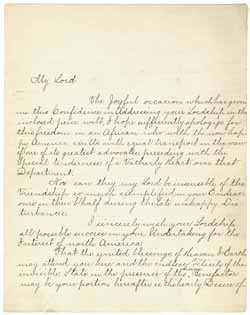 My Lord
The Joyful occasion which has given
me this Confidence in Addressing your Lordship in the
inclosed piece will, I hope sufficiently apologize for
this freedom in an African who with the now hap-
py America exults with equal transport in the view
of its greatest advocate presiding with the
Special tenderness of a Fatherly heart over that
Department.
Nor can they, my Lord be insensible of the
Friendship so much exemplified in your Endeav-
ours in their behalf during the late unhappy Dis-
turbances.
I sincerely wish your Lordship
all possible success in your Undertaking for the
Interest of north America
That the united blessings of Heaven & Earth
may attend you here and the endless Felicity of the
invisible State in the presence of the Benefactor
may be your portion hereafter is the hearty Desire of